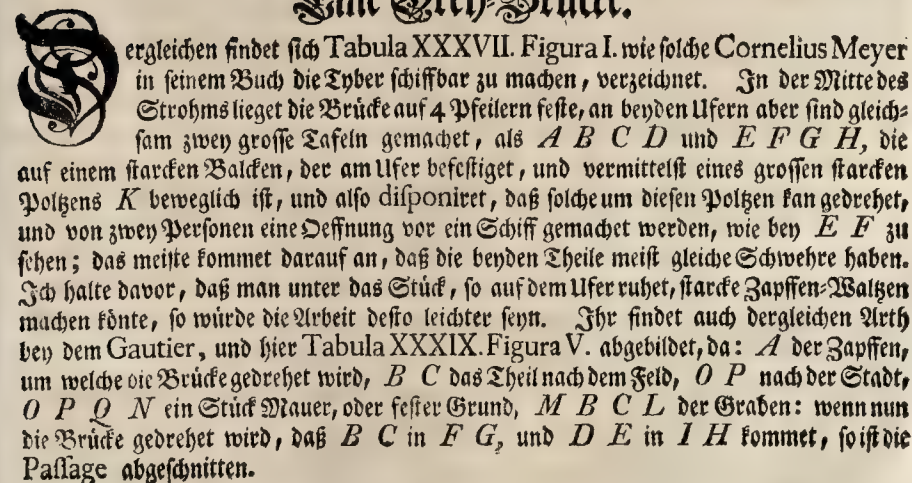 Eine Dreh-Brücke.
Dergleichen findet sich Tabula XXXVII. Figura I. wie solche Cornelius Meyer
in seinem Buch die Tyber schiffbar zu machen, verzeichnet. In der Mitte des
Strohms lieget die Brücke auf 4 Pfeilern feste, an beyden Ufern aber sind gleich-
sam zwey grosse Tafeln gemachet, als A B C D und E F G H, die
auf einem starcken Balcken, der am Ufer befestiget, und vermittelst eines grossen starcken
Poltzens K beweglich ist, und also disponiret, daß solche um diesen Poltzen kan gedrehet,
und von zwey Personen eine Oeffnung vor ein Schiff gemachet werden, wie bey E F zu
sehen; das meiste kommet darauf an, daß die beyden Theile meist gleiche Schwehre haben.
Ich halte davor, daß man unter das Stück, so auf dem Ufer ruhet, starcke Zapffen-Waltzen
machen könte, so würde die Arbeit desto leichter seyn. Ihr findet auch dergleichen Arth
bey dem Gautier, und hier Tabula XXXIX. Figura V. abgebildet, da: A der Zapffen,
um welche die Brücke gedrehet wird, B C das Theil nach dem Feld, O P nach der Stadt,
O P Q N ein Stück Mauer, oder fester Grund, M B C L der Graben: wenn nun
die Brücke gedrehet wird, daß B C in F G, und D E in I H kommet, so ist die
Passage abgeschnitten.